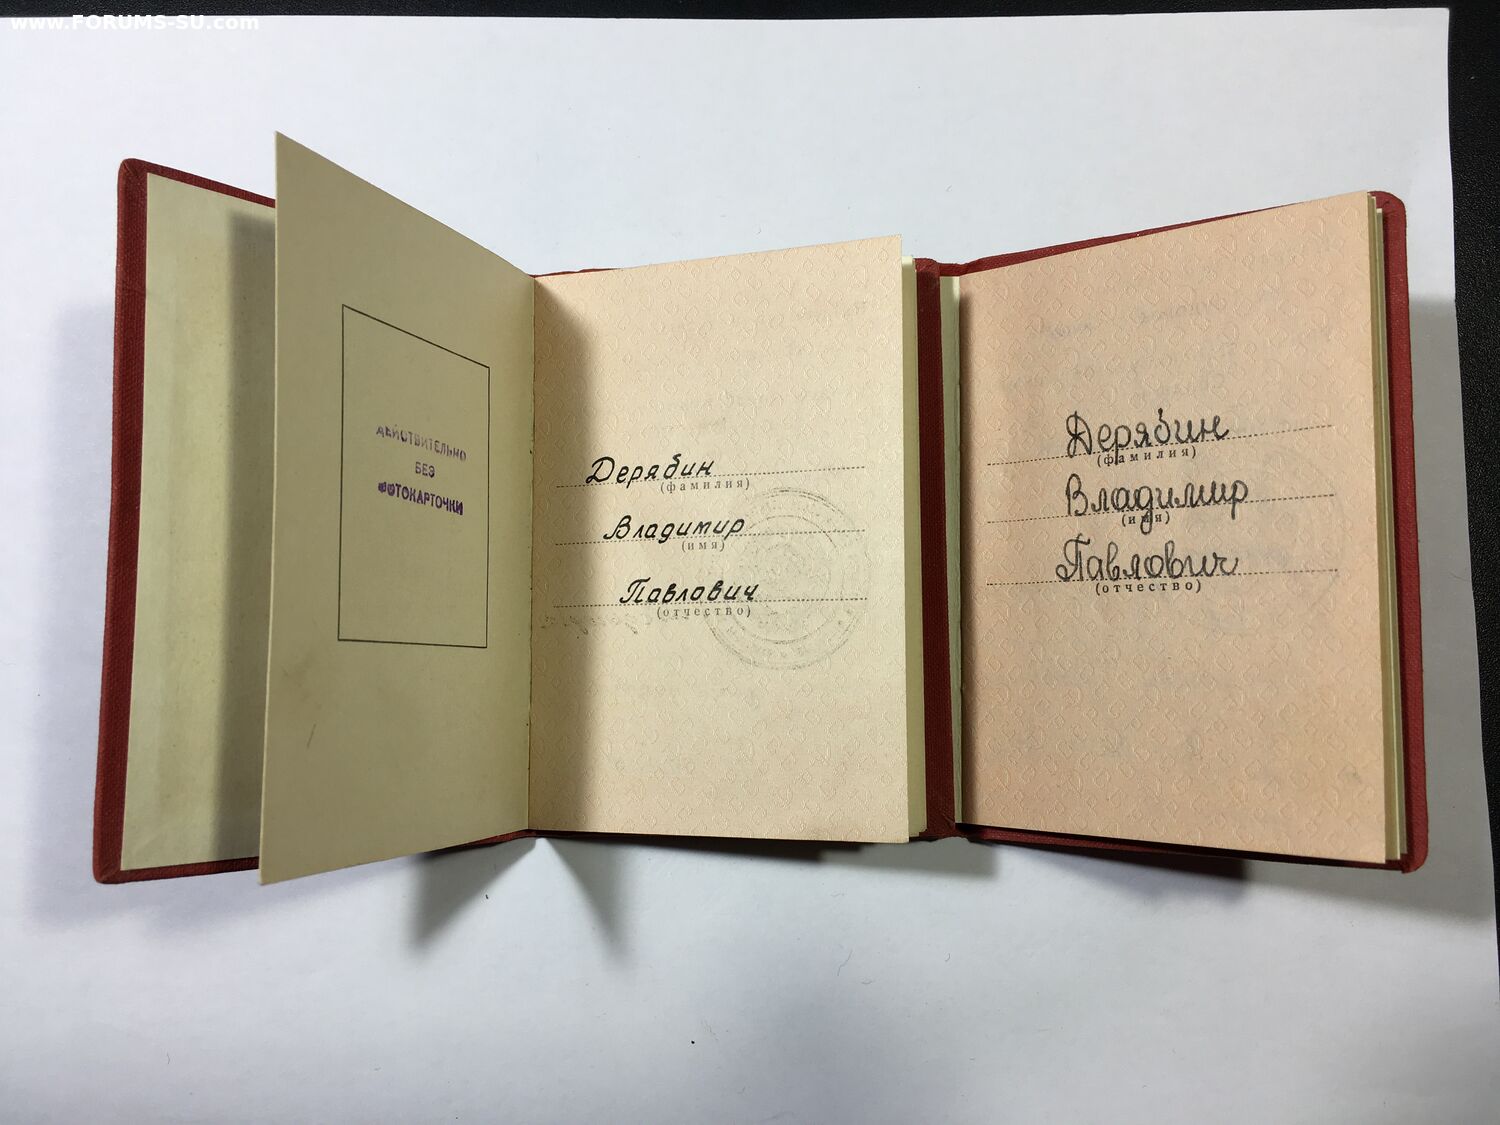 www.FORUMS-SU.com
ДЕЙСТВИТЕЛЬНО
БЕЗ
ФОТОКАРТОЧКИ
Дерябин
(фамилия)
Владимир
(имя)
Павлович
(отчество)
Дерябин
(фамилия)
Владимир
(имя)
Павлович
(отчество)